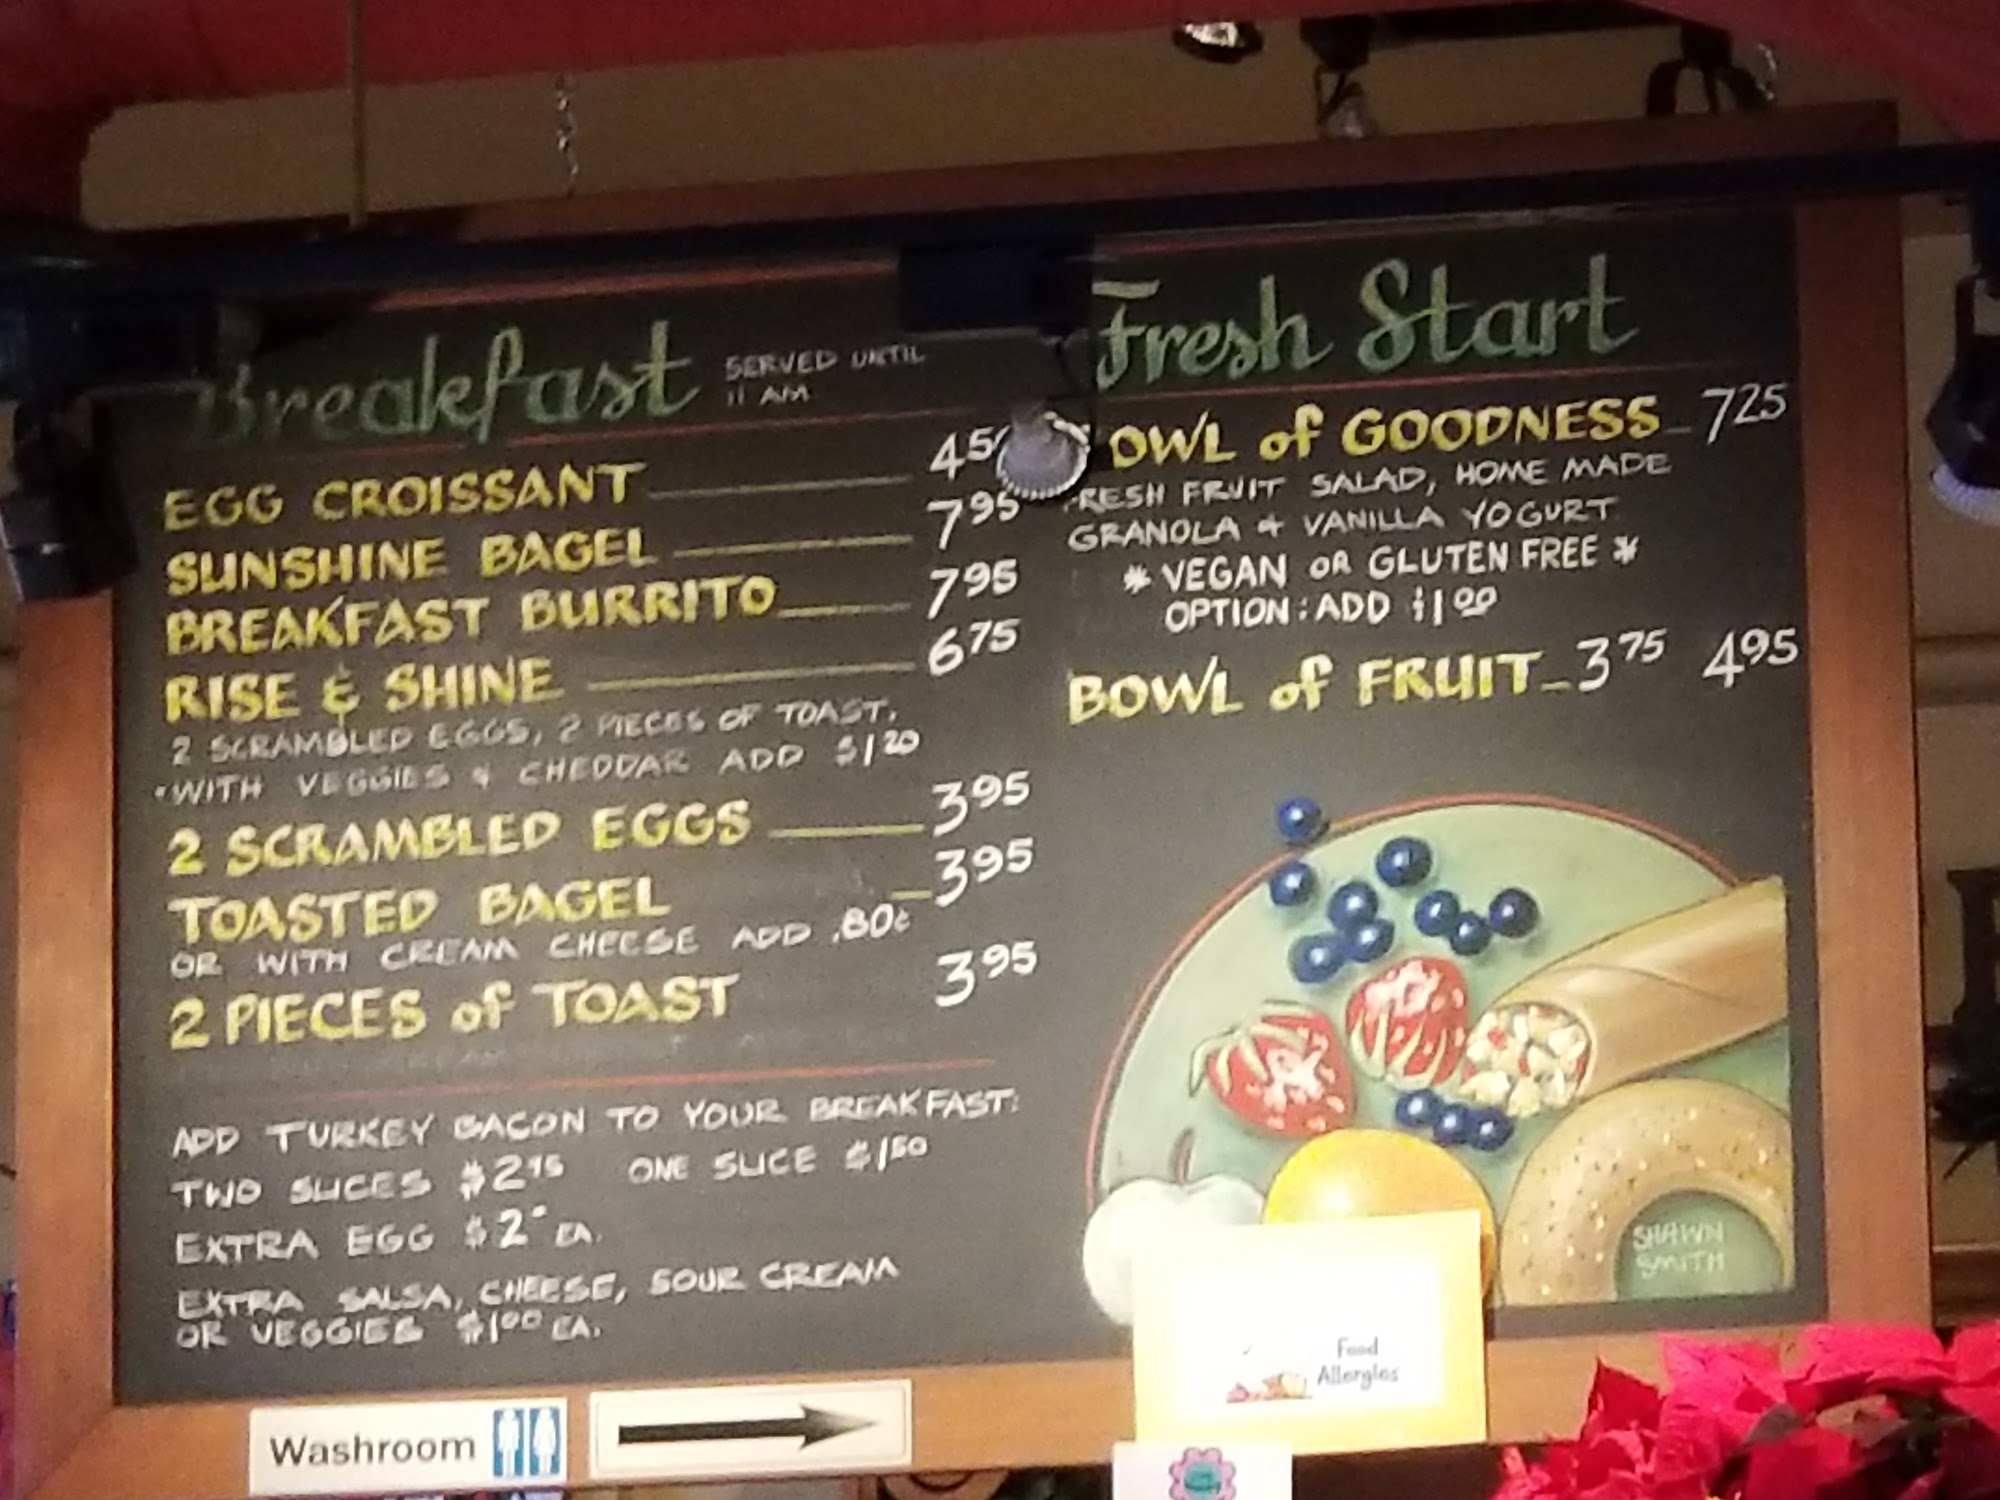 Breakfast SERVED UNTIL
11 AM
EGG CROISSANT
SUNSHINE BAGEL 7.95
BREAKFAST BURRITO 7.95
RISE & SHINE 6.75
2 SCRAMBLED EGGS, 2 PIECES OF TOAST.
*WITH VEGGIES & CHEDDAR ADD $1.20
2 SCRAMBLED EGGS 3.95
TOASTED BAGEL 3.95
OR WITH CREAM CHEESE ADD .80¢
2 PIECES of TOAST 3.95
ADD TURKEY BACON TO YOUR BREAKFAST:
TWO SLICES ONE SLICE $1.50
EXTRA EGG $2- EA.
EXTRA SALSA, CHEESE, SOUR CREAM
OR VEGGIES $1.00 EA.
Fresh Start
OWL of GOODNESS 7.25
RESH FRUIT SALAD, HOME MADE
GRANOLA & VANILLA YOGURT
* VEGAN OR GLUTEN FREE *
OPTION: ADD $1.00
BOWL of FRUIT 3.75 4.95
SHAWN
SMITH
Food
Allergies
Washroom